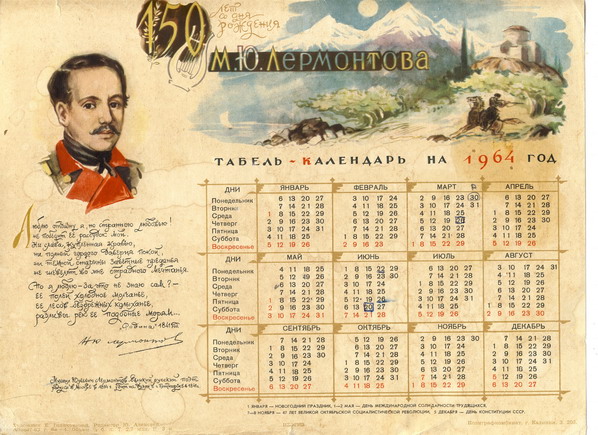 150
лет
со дня
рождения
М.Ю. Лермонтова
ТАБЕЛЬ-КАЛЕНДАРЬ НА 1964 ГОД
ДНИ ЯНВАРЬ ФЕВРАЛЬ МАРТ АПРЕЛЬ
Понедельник 6 13 20 27 3 10 17 24 2 9 16 23 30 6 13 20 27
Вторник 7 14 21 28 4 11 18 25 3 10 17 24 31 7 14 21 28
Среда 1 8 15 22 29 5 12 19 26 4 11 18 25 1 8 15 22 29
Четверг 2 9 16 23 30 6 13 20 27 5 12 19 26 2 9 16 23 30
Пятница 3 10 17 24 31 7 14 21 28 6 13 20 27 3 10 17 24
Суббота 4 11 18 25 1 8 15 22 29 7 14 21 28 4 11 18 25
Воскресенье 5 12 19 26 2 9 16 23 1 8 15 22 29 5 12 19 26
ДНИ МАЙ ИЮНЬ ИЮЛЬ АВГУСТ
Понедельник 4 11 18 25 1 8 15 22 29 6 13 20 27 3 10 17 24 31
Вторник 5 12 19 26 2 9 16 23 30 7 14 21 28 4 11 18 25
Среда 6 13 20 27 3 10 17 24 1 8 15 22 29 5 12 19 26
Четверг 7 14 21 28 4 11 18 25 2 9 16 23 30 6 13 20 27
Пятница 1 8 15 22 29 5 12 19 26 3 10 17 24 31 7 14 21 28
Суббота 2 9 16 23 30 6 13 20 27 4 11 18 25 1 8 15 22 29
Воскресенье 3 10 17 24 31 7 14 21 28 5 12 19 26 2 9 16 23 30
ДНИ СЕНТЯБРЬ ОКТЯБРЬ НОЯБРЬ ДЕКАБРЬ
Понедельник 7 14 21 28 5 12 19 26 2 9 16 23 30 7 14 21 28
Вторник 1 8 15 22 29 6 13 20 27 3 10 17 24 1 8 15 22 29
Среда 2 9 16 23 30 7 14 21 28 4 11 18 25 2 9 16 23 30
Четверг 3 10 17 24 1 8 15 22 29 5 12 19 26 3 10 17 24 31
Пятница 4 11 18 25 2 9 16 23 30 6 13 20 27 4 11 18 25
Суббота 5 12 19 26 3 10 17 24 31 7 14 21 28 5 12 19 26
Воскресенье 6 13 20 27 4 11 18 25 1 8 15 22 29 6 13 20 27
1 ЯНВАРЯ — НОВОГОДНИЙ ПРАЗДНИК, 1—2 МАЯ — ДЕНЬ МЕЖДУНАРОДНОЙ СОЛИДАРНОСТИ ТРУДЯЩИХСЯ,
7—8 НОЯБРЯ — 47 ЛЕТ ВЕЛИКОЙ ОКТЯБРЬСКОЙ СОЦИАЛИСТИЧЕСКОЙ РЕВОЛЮЦИИ, 5 ДЕКАБРЯ — ДЕНЬ КОНСТИТУЦИИ СССР.
Люблю отчизну я, но странною любовью!
Не победит ее рассудок мой.
Ни слава, купленная кровью,
Ни полный гордого доверия покой,
Ни темной старины заветные преданья
Не шевелят во мне отрадного мечтанья.
Но я люблю — за что, не знаю сам? —
Ее полей холодное молчанье,
Ее лесов безбрежных колыханье,
Разливы рек ее подобные морям...
„Родина" 1841
М Ю Лермонтов